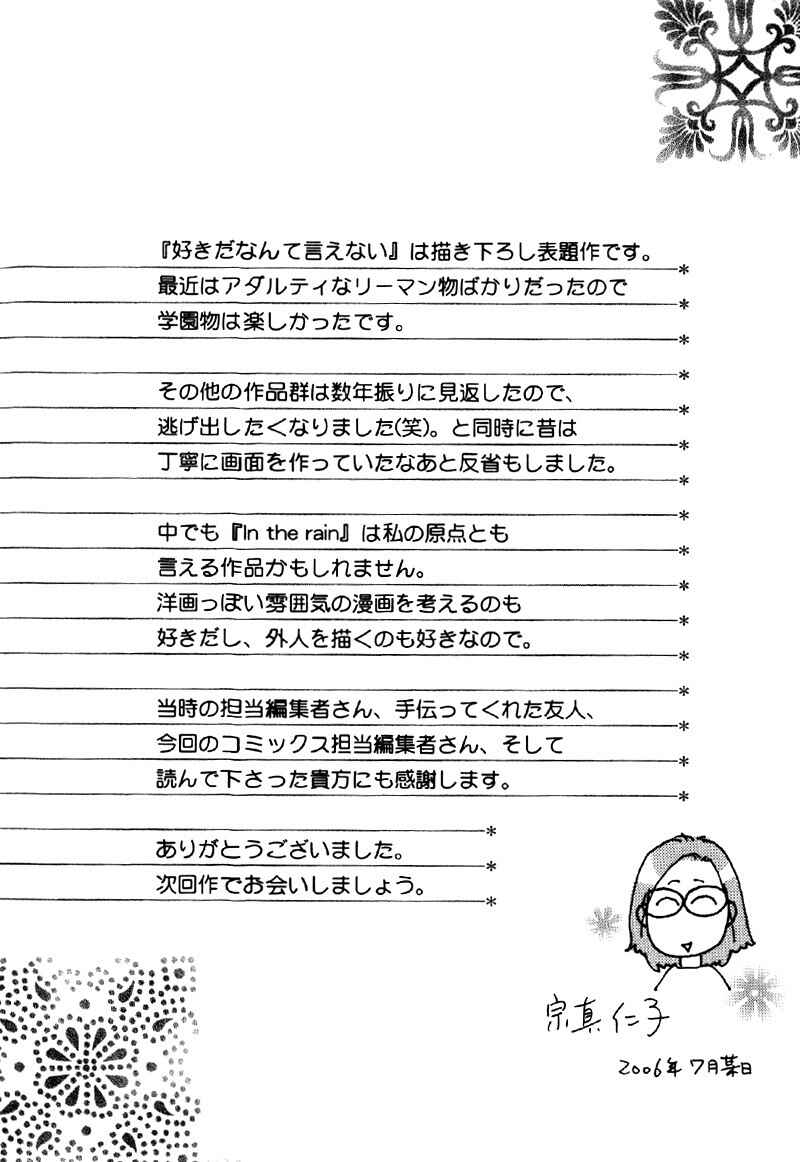 『好きだなんて言えない』は描き下ろし表題作です。
最近はアダルティなリーマン物ばかりだったので
学園物は楽しかったです。
その他の作品群は数年振りに見返したので、
逃げ出したくなりました(笑)。と同時に昔は
丁寧に画面を作っていたなあと反省もしました。
中でも『In the rain』は私の原点とも
言える作品かもしれません。
洋画っぽい雰囲気の漫画を考えるのも
好きだし、外人を描くのも好きなので。
当時の担当編集者さん、手伝ってくれた友人、
今回のコミックス担当編集者さん、そして
読んで下さった貴方にも感謝します。
ありがとうございました。
次回作でお会いしましょう。
宗真仁子
2006年7月某日